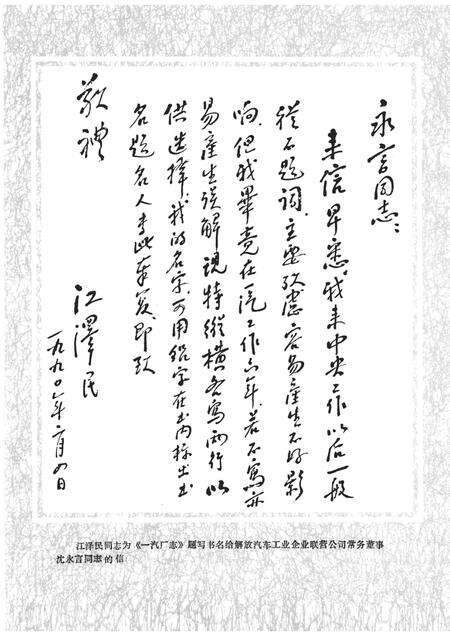 永言同志：
来信早悉。我来中央工作以后一般
从不题词，主要考虑容易产生不好影
响。但我毕竟在一汽工作六年，若不写亦
易產生误解，现特纵横各写两行以
供选择。我的名字，可用铅字在书内标出书
名题名人。专此奉复，即致
敬禮
江澤民
一九九〇年二月四日
江泽民同志为《一汽厂志》题写书名给解放汽车工业企业联营公司常务董事
沈永言同志的信